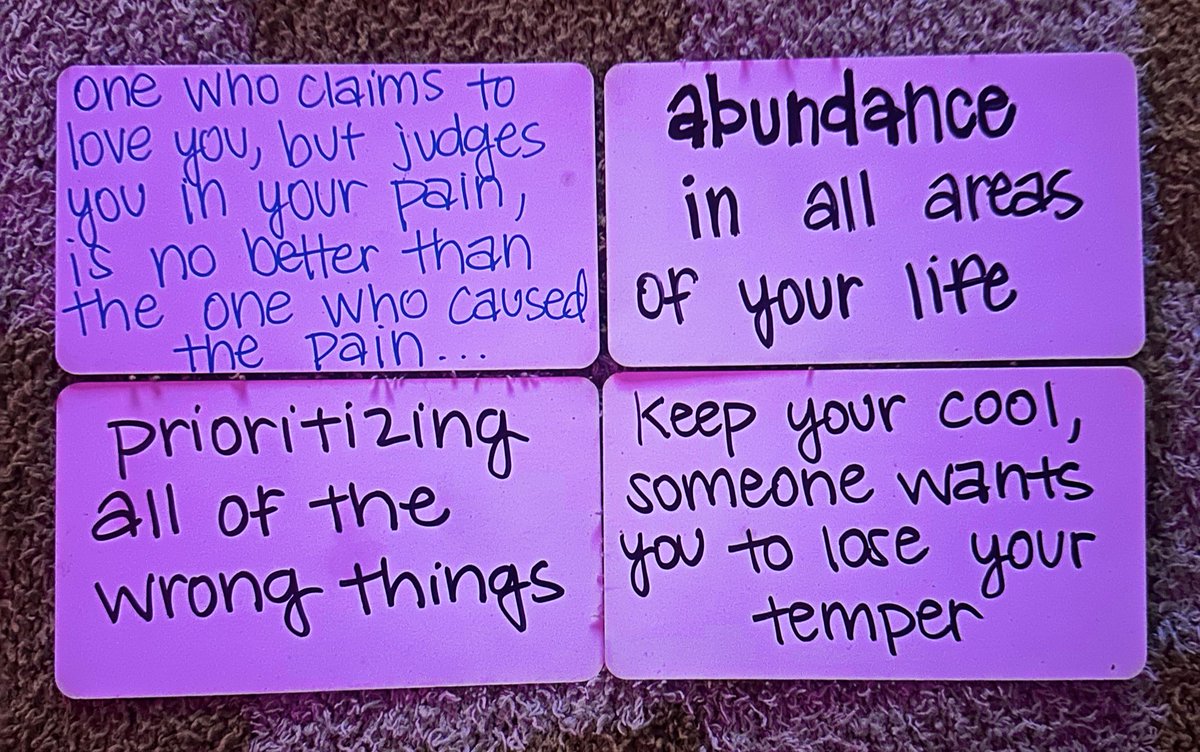 one who claims to
love you, but judges
you in your pain,
is no better than
the one who caused
the pain...
abundance
in all areas
of your life
prioritizing
all of the
wrong things
keep your cool,
someone wants
you to lose your
temper